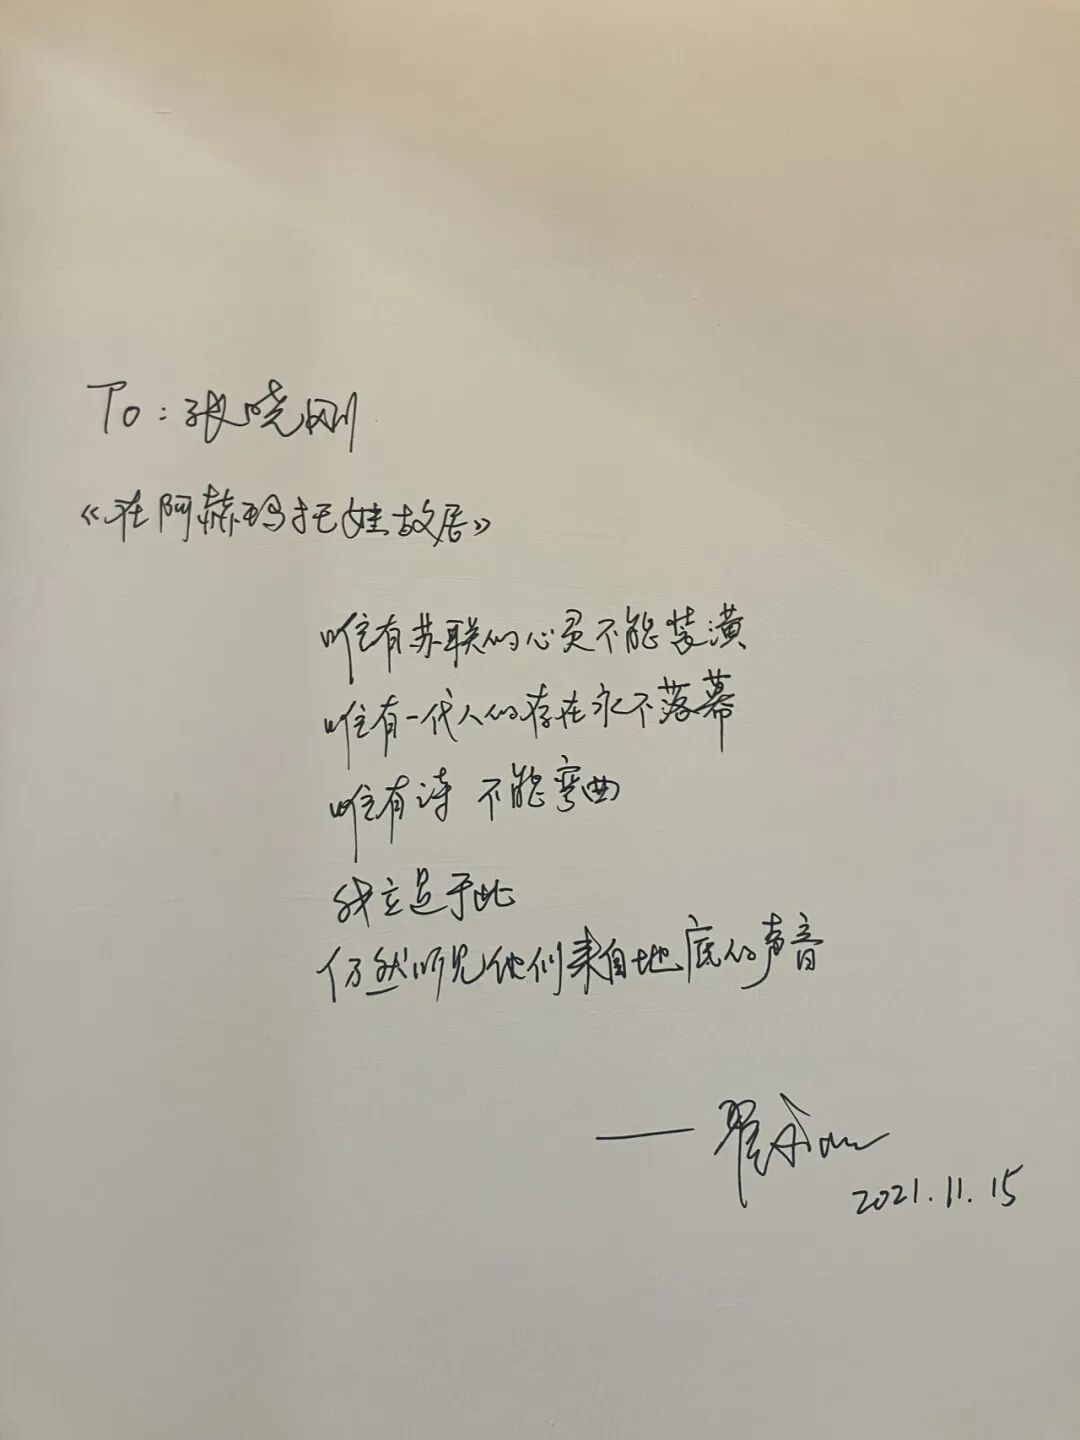 To：张晓刚
《在阿赫玛托娃故居》
唯有苏联的心灵不能装潢
唯有一代人的存在永不落幕
唯有诗 不能弯曲
我立足于此
仍然听见他们来自地底的声音
——翟永明
2021.11.15